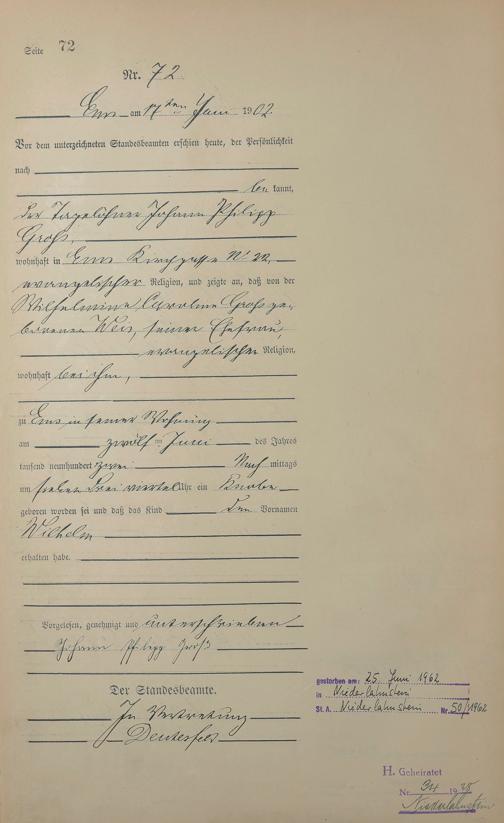 Seite 72
Nr. 72
Ems am 17ten Juni 1902.
Vor dem unterzeichneten Standesbeamten erschien heute, der Persönlichkeit
nach
be kannt,
der Tagelöhner Johann Philipp
Groß,
wohnhaft in Ems Kirchgasse No 22,
evangelischer Religion, und zeigte an, daß von der
Wilhelmine Caroline Groß ge-
borenen Weis, seiner Ehefrau,
evangelischer Religion,
wohnhaft bei ihm,
zu Ems in seiner Wohnung
am zwölften Juni des Jahres
tausend neunhundert zwei Nach mittags
um sieben drei viertel Uhr ein Knabe
geboren worden sei und daß das Kind den Vornamen
Wilhelm
erhalten habe.
Vorgelesen, genehmigt und unterschrieben
Johann Philipp Groß
Der Standesbeamte.
In Vertretung
gestorben am: 25. Juni 1962
in Niederlahnstein
St. A. Niederlahnstein Nr. 50/1962
H. Geheiratet
Nr. 34 19
Niederlahnstein